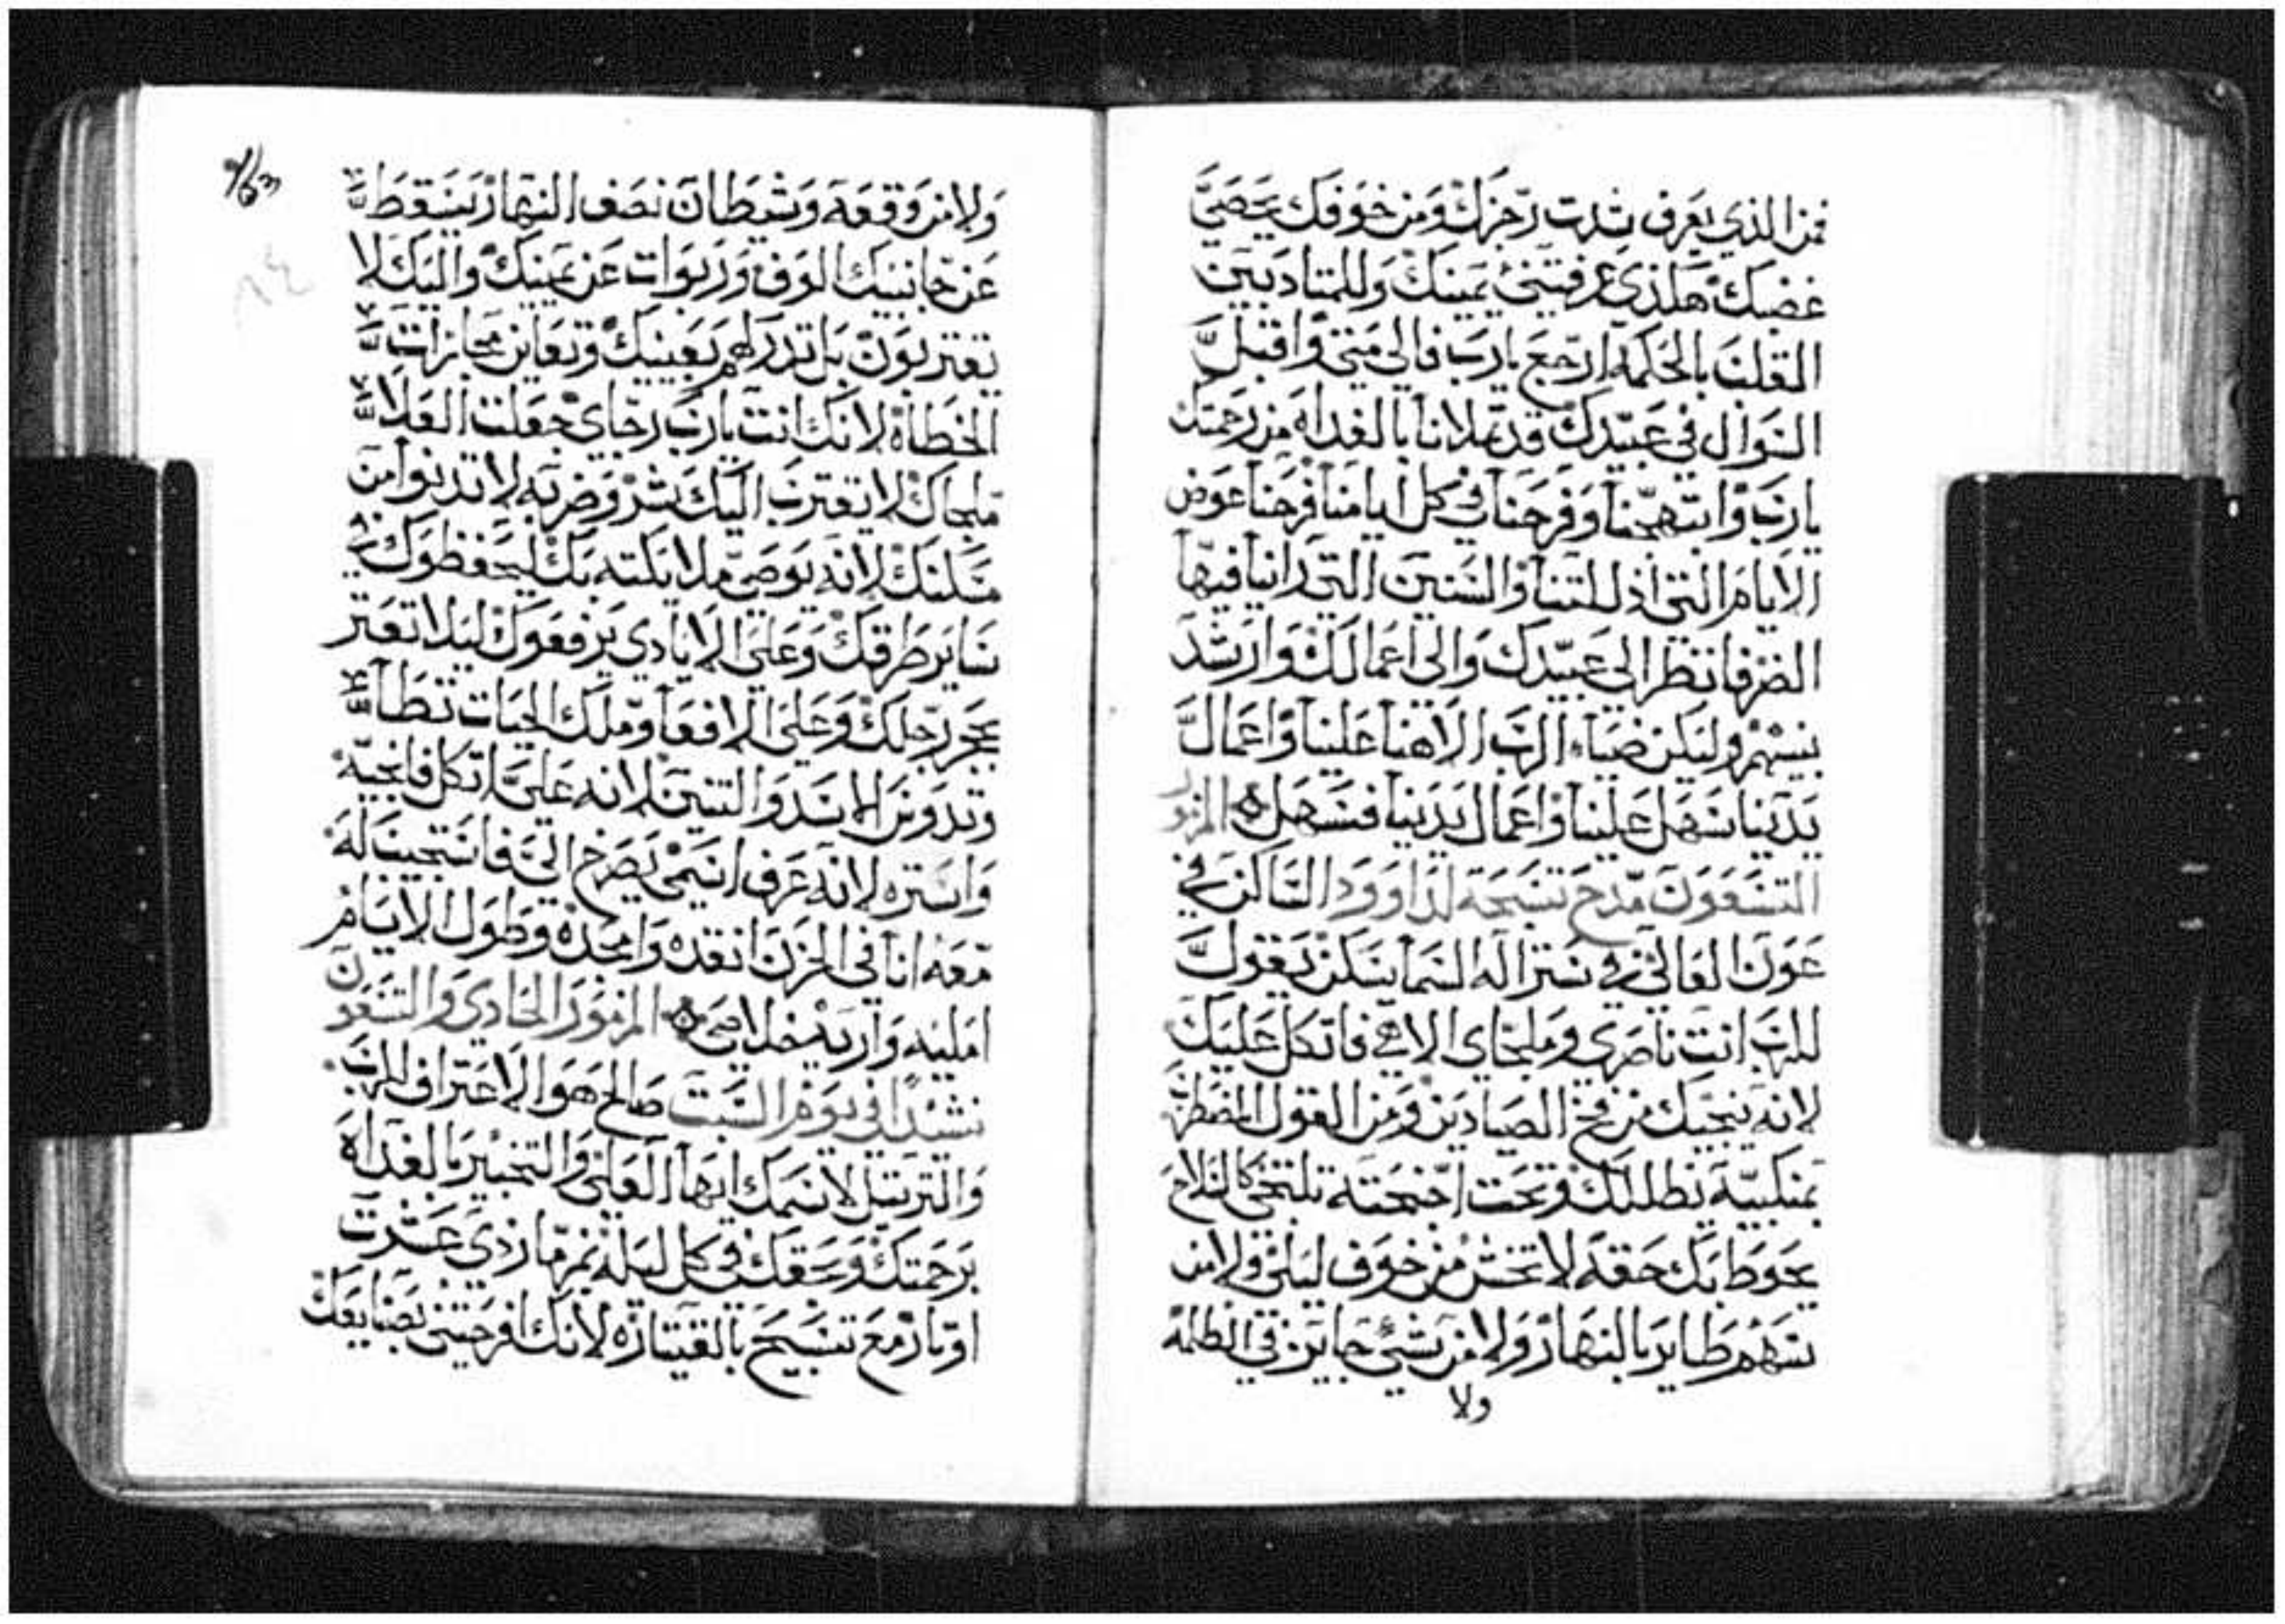 فمن الذي يعرف شدت رجزك ومن خوفك يحصي
غضبك هلذي عرفتني يمينك وللمتادبين
القلب بالحكمه ارجع يارب فالي متي واقبل
السوال في عبيدك قد تملانا بالغداه من رحمتك
يارب وابتهجنا وفرحنا في كل ايامنا فرحنا عوض
الايام التي اذللتنا والسنين التي راينا فيها
الضر فانظر الي عبيدك والي اعمالك وارشد
بنيهم وليكن ضياء الرب الاهنا علينا واعمال
يدينا سهل علينا واعمال يدينا فسهل المزمور
التسعون مدح تسبحة لداوود الساكن في
عون العالي في ستر اله السما يسكن يقول
للرب انت ناصري وملجاي الاهي فاتكل عليك
لانه ينجيك من فخ الصيادين ومن القول المضطرب
بمنكبيه يظللك وتحت اجنحته تلتجي كالسلاح
يحوط بك حقه لا تخش من خوف ليلي ولا من
سهم طاير بالنهار ولا من شي جايز في الظلمه
ولا
ولا من وقعه وشيطان نصف النهار يسقط
عن جانبك الوف وربوات عن يمينك واليك لا
يقتربون بل تدرلهم بعينيك وتعاين مجازات
الخطاه لانك انت يارب رجاي جعلت العلا
ملجاك لا يقترب اليك شر وضربه لا تدنوا من
مسكنك لانه يوصي ملايكته بك ليحفظوك في
ساير طرقك وعلي الايادي يرفعوك ليلا تعتر
بحجر رجلك وعلي الافعا وملك الحيات تطا
وتدوس الاسد والتنين لانه علي اتكل فانجيه
واستره لانه عرف اسمي يصرخ الي فاستجيب له
معه انا في الحزن انقده وامجده وطول الايام
امليه واريه خلاصي المزمور الحادي والتسعون
نشيدا في يوم السبت صالح هو الاعتراف للرب
والترتيل لاسمك ايها العالي والتخبير بالغداه
برحمتك وحقك في كل ليله بمزمار ذي عشرت
اوتار مع تسبيح بالقيتاره لانك افرحتني بصنايعك